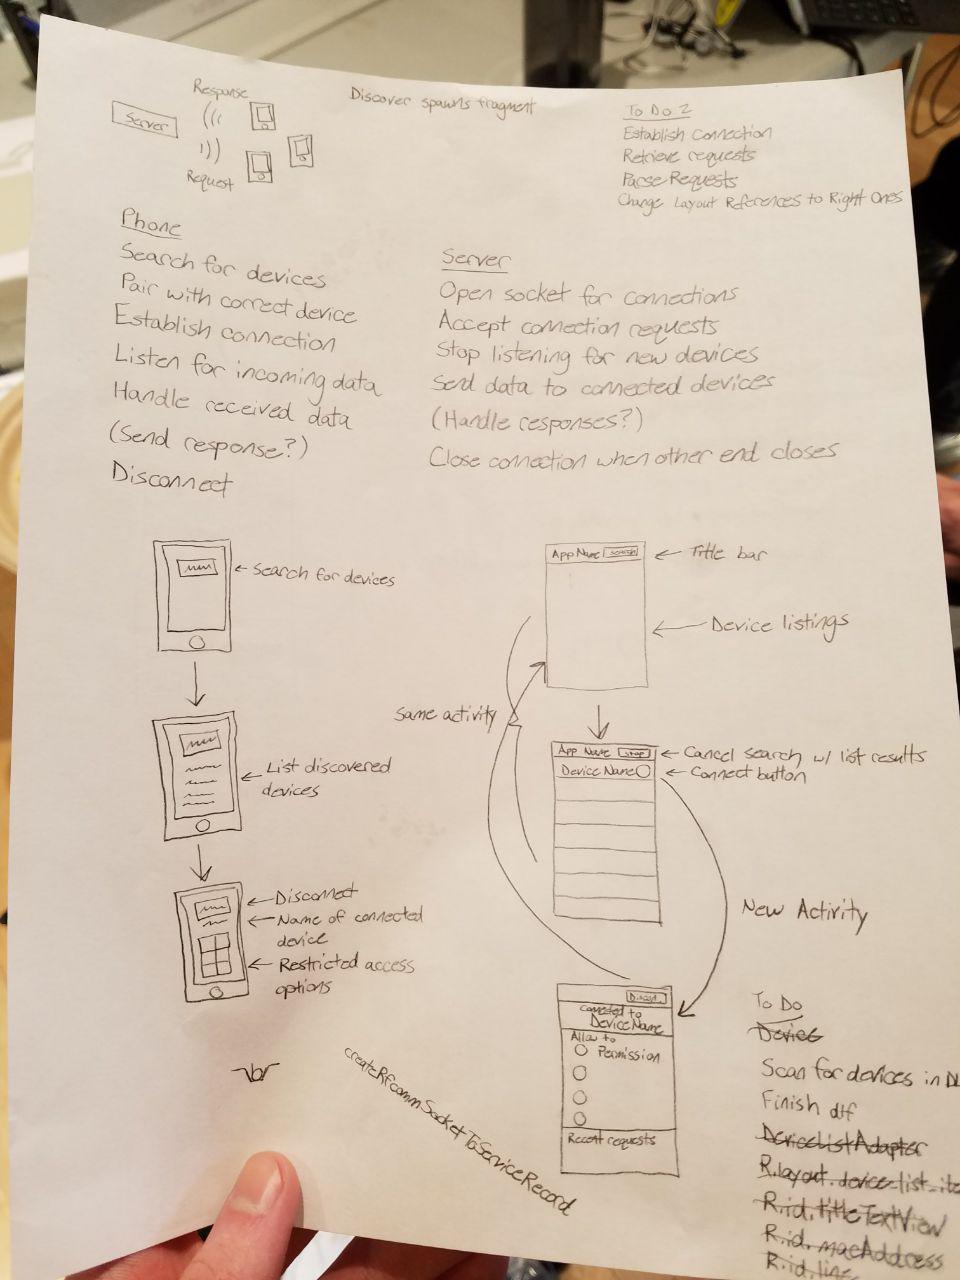 Response
Server
Request
Discover spawns fragment
To Do 2
Establish Connection
Retrieve requests
Parse Requests
Change Layout References to Right Ones
Phone
Search for devices
Pair with correct device
Establish connection
Listen for incoming data
Handle received data
(Send response?)
Disconnect
Server
Open socket for connections
Accept connection requests
Stop listening for new devices
Send data to connected devices
(Handle responses?)
Close connection when other end closes
Search for devices
List discovered
devices
Disconnect
Name of connected
device
Restricted access
options
App Name search
Title bar
Device listings
Same activity
App Name stop
Cancel search w/ list results
Device Name
Connect button
New Activity
Discon.
connected to
Device Name
Allow to
Permission
Recent requests
createRfcommSocketToServiceRecord
To Do
Device
Scan for devices in
Finish dlf
DeviceListAdapter
R.layout.device_list_ite
R.id.titleTextView
R.id.macAddress
R.id.line